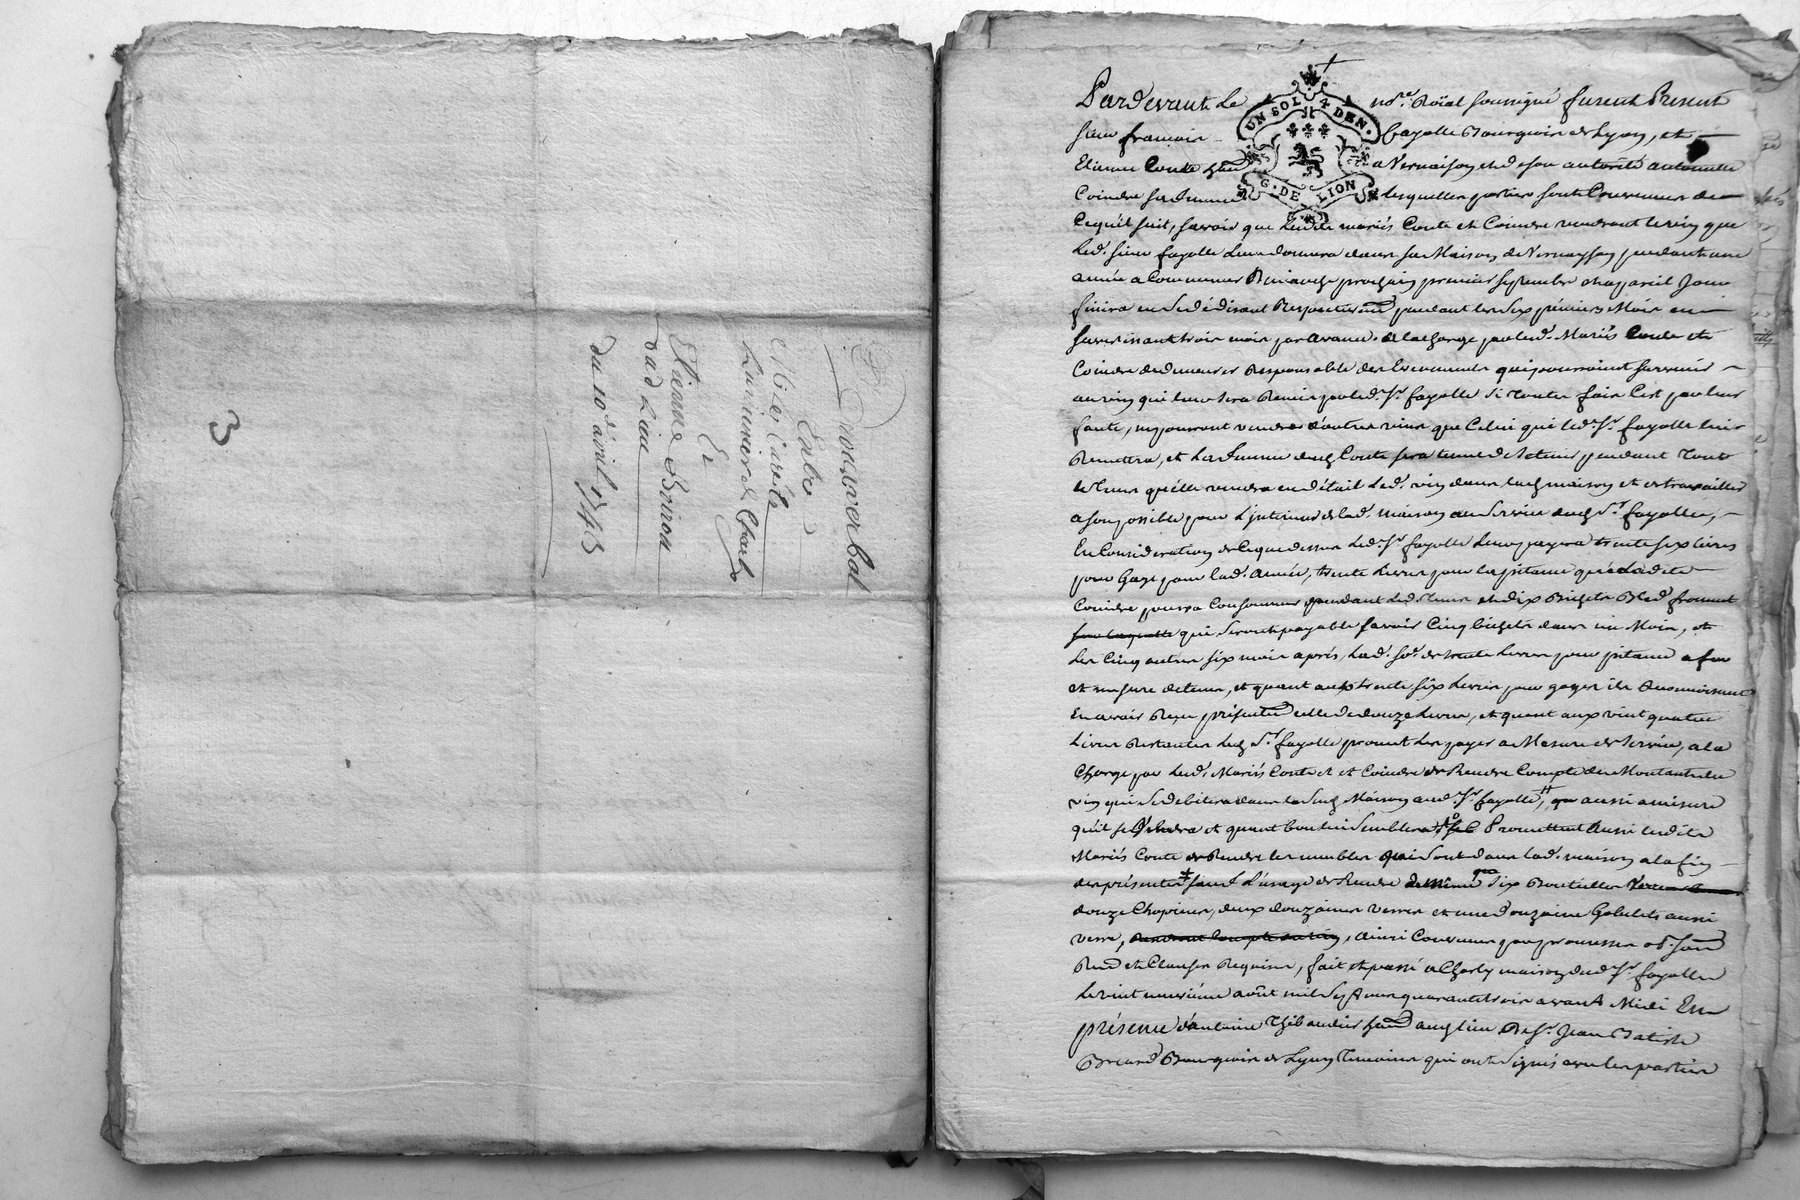 Proces verbal
Entre
Et
Etienne Boiron
dud. Lieu
du 10e avril 1743
3
UN SOL 4 DEN.
G. DE LION
Pardevant Le nore. Roïal soussigné furent Present
sieur françois fayolle Bourgeois de Lyon, et
Etienne Conte a Vernaison et de son autorité
Coindre sa femme lesquelles parties sont Convenues de
Cequ'il suit, savoir que lesdits mariés Conte et Coindre vendront le vin que
Led. sieur fayolle Leur donnera dans sa Maison de Vernaison pendant une
année a Commencer Dimanche prochain premier septembre et a pareil Jour
finira en se dédisant Respectivemt pendant les six premiers Mois en
savertissant trois mois par avance, a la charge par led. Mariés Conte et
Coindre de demeurer Responsable des Evenements qui pourroient survenir
au vin qui leur sera Remis par led. Sr. fayolle si toutes fois C'est par leur
faute, ny pourront vendre d'autres vins que Celui que led. Sr. fayolle leur
Remettra, et La femme dud. Conte sera tenue de pendant tout
le tems qu'elle vendra en détail Led. vin dans lad. maison et de travailler
a son possible pour L'interieur de lad. maison au service dud. Sr. fayolle,
En Consideration de Ceque dessus Led. Sr. fayolle Leur payera trente six livres
pour Gage pour lad. année, trente Livres pour la pitance que Ladite
Coindre pourra Consommer pendant Led. tems et dix Bichets Bled froment
qui seront payable savoir Cinq bichets dans un Mois, et
Les Cinq autres six mois après, Lad. so. de trente Livres pour pitance a fur
et mesure du tems, et quant aux trente six Livres pour gages ils Reconnoissent
En avoir Reçu présentemt celle de douze Livres, et quant aux vint quatre
Livres Restantes Led. Sr. fayolle promet Les payer a Mesure de service, a la
Charge par Led. Mariés Conte et Coindre de Rendre Compte du Montant du
vin qui se debitera dans lad. Maison aud. Sr. fayolle, aussi a mesure
qu'il se vendra et quant bon lui semblera Promettent Aussi lesdits
Mariés Conte de Rendre les meubles qui sont dans lad. maison a la fin
des présentes sauf L'usage de Rendre de même que six Bouteilles
douze Chopines, deux douzaines verres et une douzaine Gobelets aussi
verre, ainsi Convenu par promesses ob. soum
Rend et Clauses Requises, fait et passé a Charly maison dud. Sr. fayolle
Le vint neuvième août mil sept cens quarante trois avant Midi En
présence d'antoine Thibaudier dud. lieu & Sr. Jean Batiste
Bourgeois de Lyon Temoins qui ont Signés avec les parties